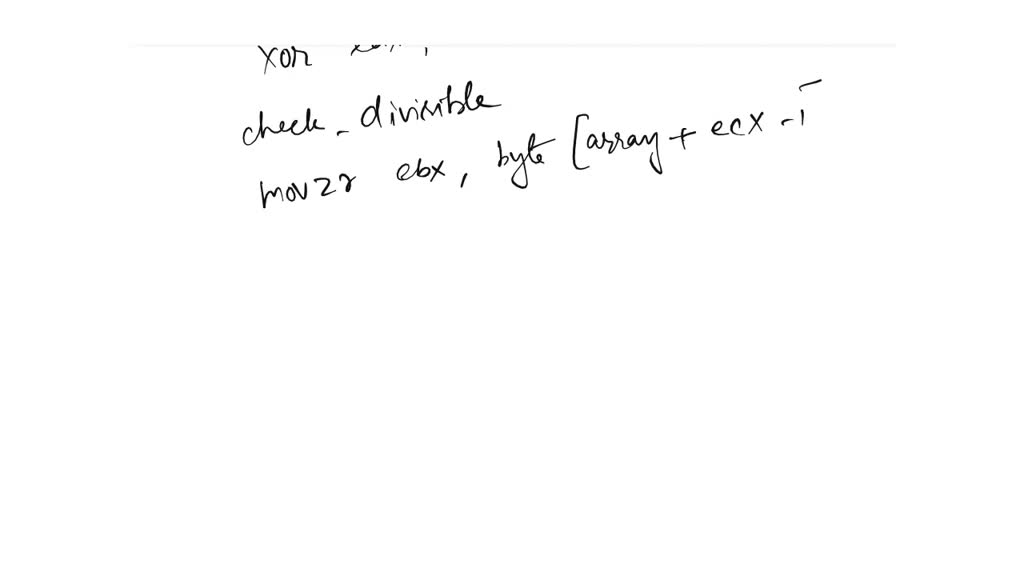 xor
check_divisible
movzr ebx, byte [array + ecx -1